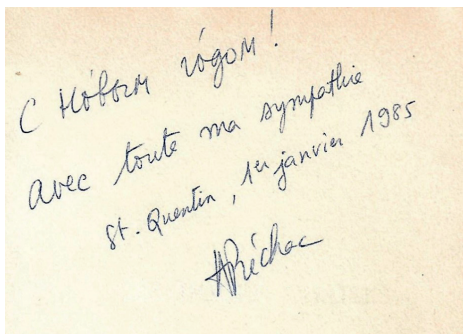 С Но́вым го́дом!
avec toute ma sympathie
St. Quentin, 1er janvier 1985
APréchac